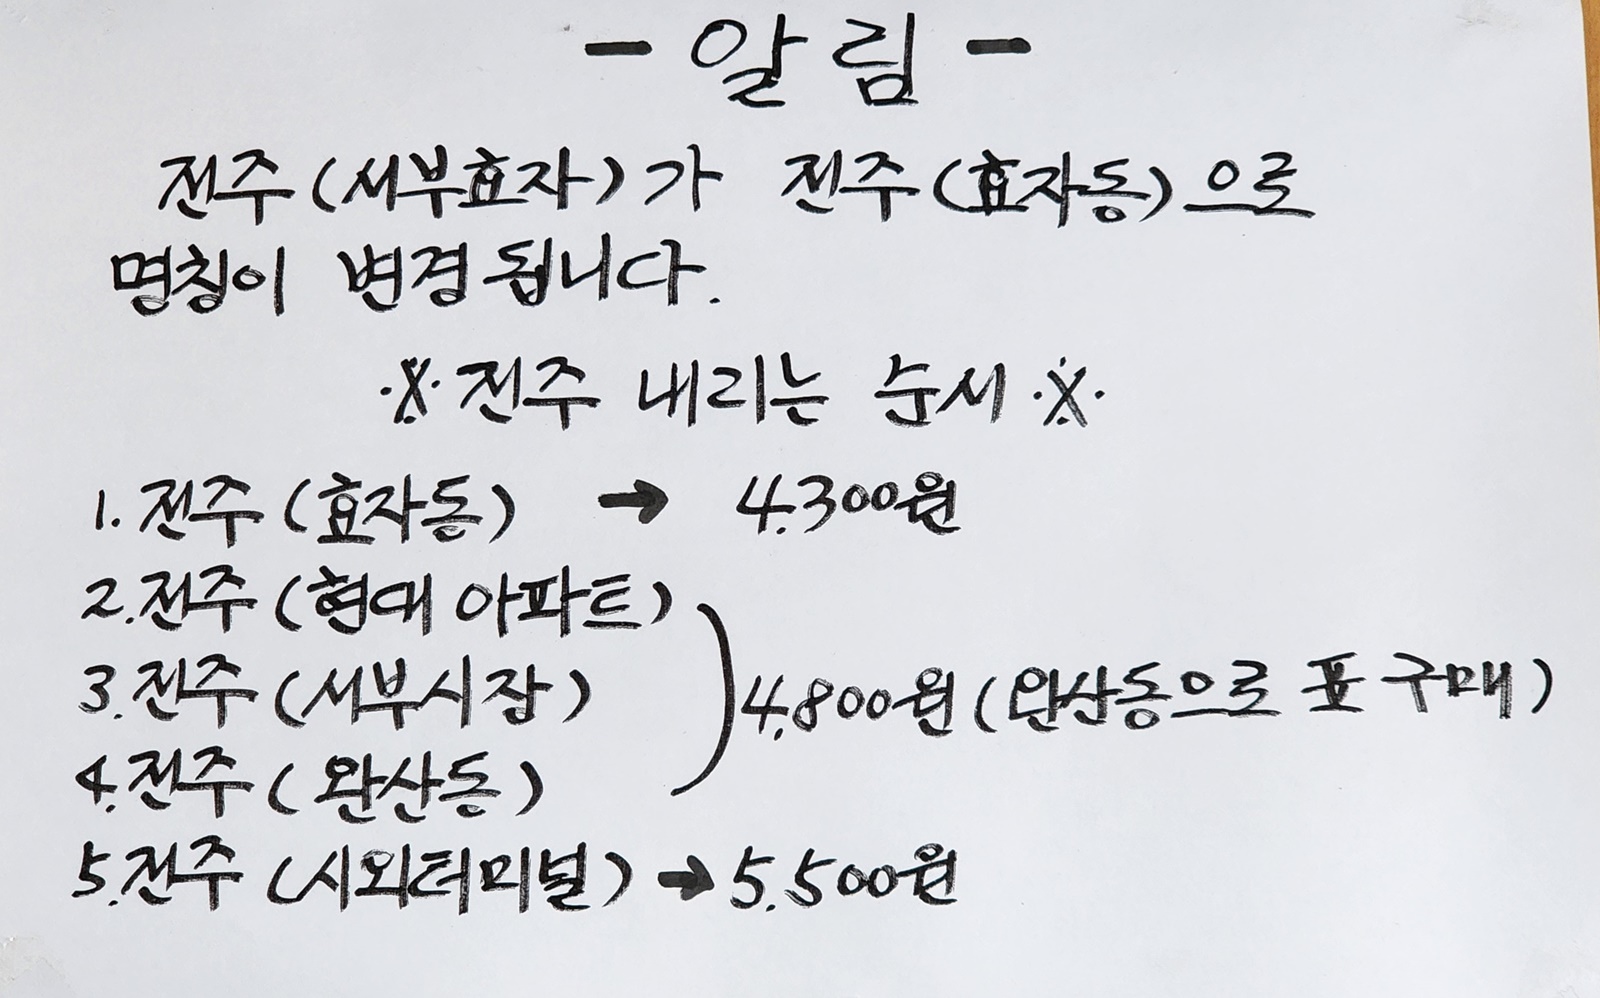 - 알림 -
전주(서부효자)가 전주(효자동)으로
명칭이 변경됩니다.
※ 전주 내리는 순서 ※
1. 전주(효자동) → 4.300원
2. 전주(현대 아파트)
3. 전주(서부시장) 4.800원(완산동으로 표 구매)
4. 전주(완산동)
5. 전주(시외터미널) → 5.500원